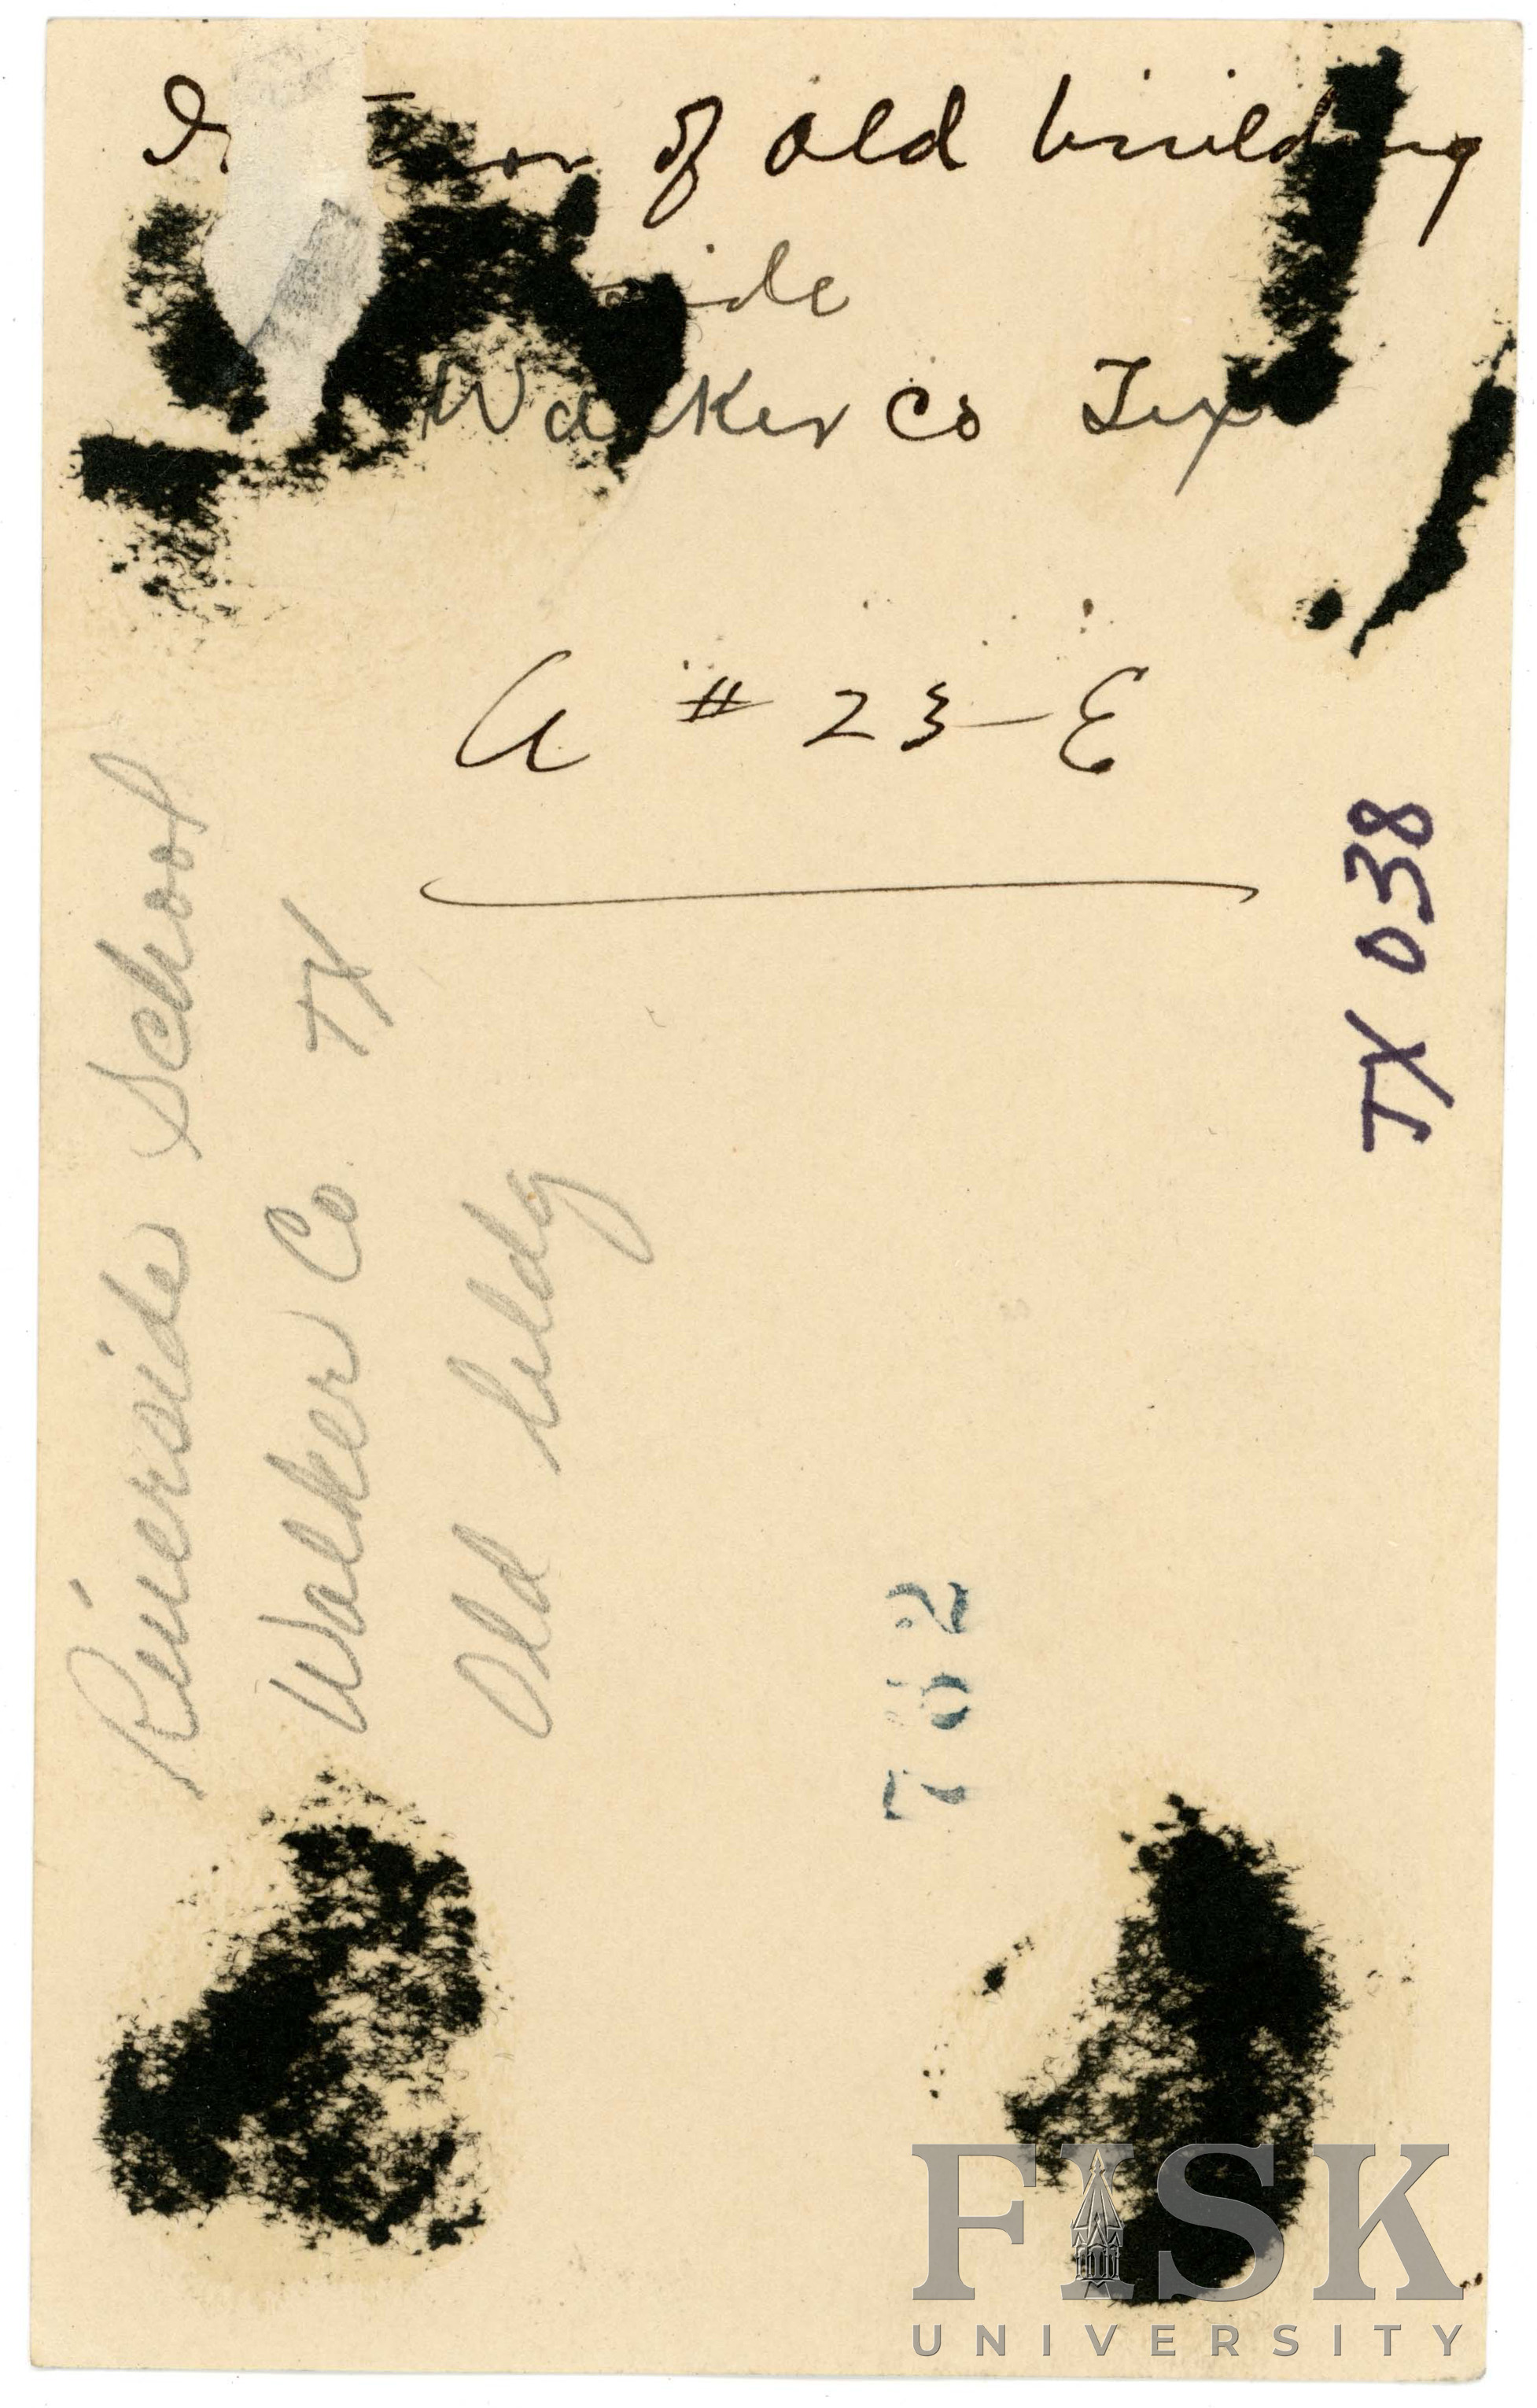 of old building
Walker Co Tex
A # 23-E
Riverside School
Walker Co TX
Old bldg
TX 038
702
FISK
UNIVERSITY